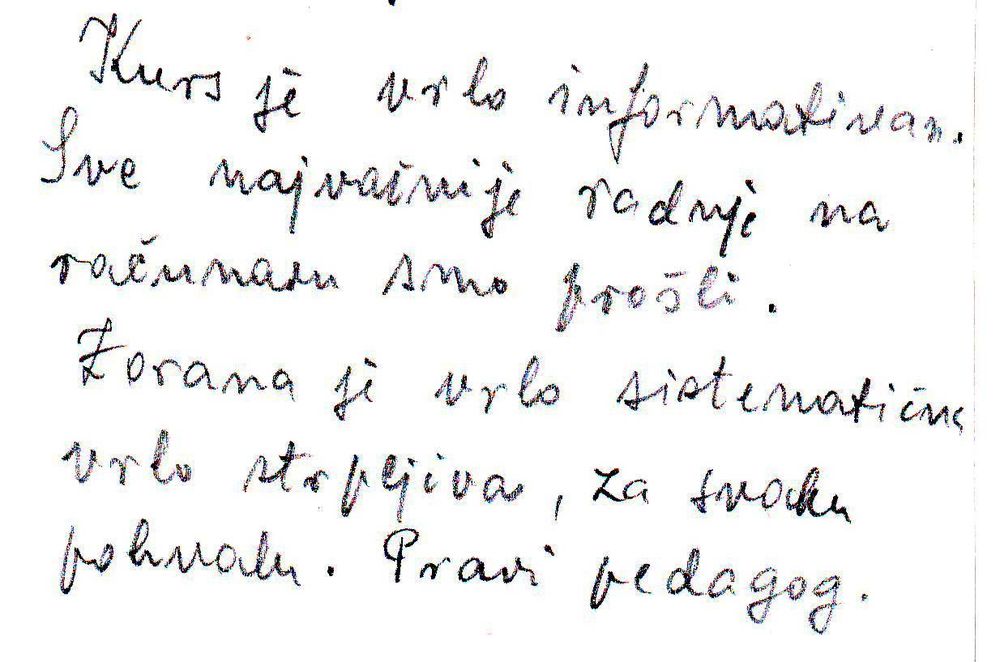 Kurs je vrlo informativan.
Sve najvažnije radnje na
računaru smo prošli.
Zorana je vrlo sistematična
vrlo strpljiva, za svaku
pohvalu. Pravi pedagog.